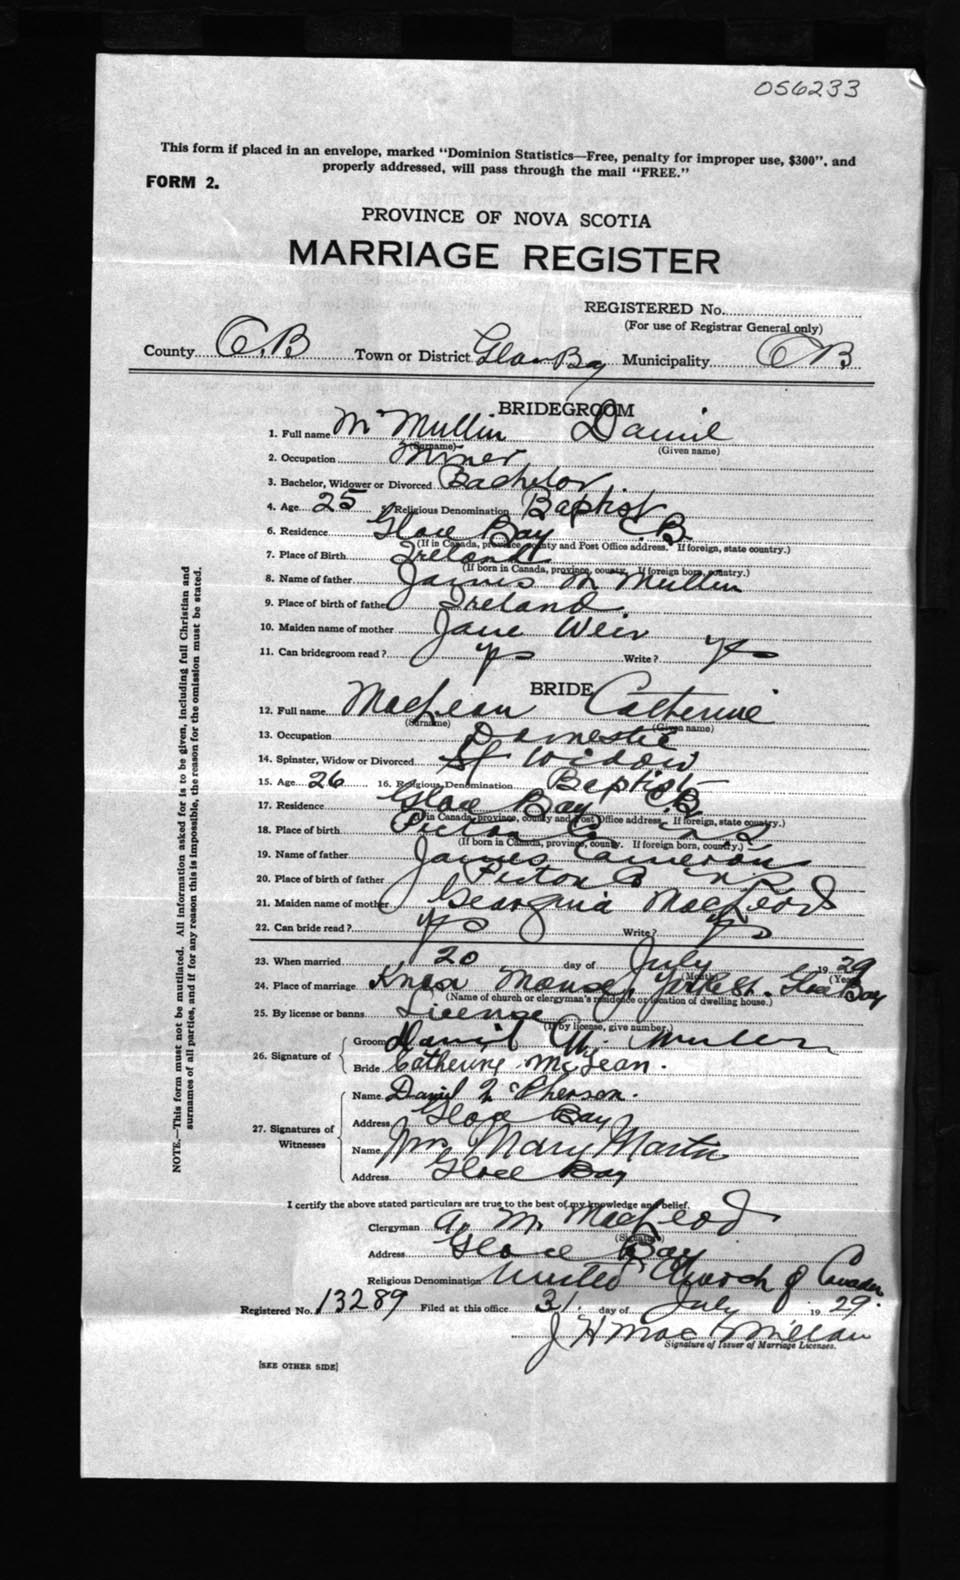 056233
This form if placed in an envelope, marked "Dominion Statistics—Free, penalty for improper use, $300", and
properly addressed, will pass through the mail "FREE."
FORM 2.
PROVINCE OF NOVA SCOTIA
MARRIAGE REGISTER
REGISTERED No.
(For use of Registrar General only)
County C.B Town or District Glace Bay Municipality C B.
BRIDEGROOM
1. Full name McMullin Daniel
(Surname) (Given name)
2. Occupation Miner
3. Bachelor, Widower or Divorced Bachelor
4. Age 25 Religious Denomination Baptist
6. Residence Glace Bay C.B.
(If in Canada, province, county and Post Office address. If foreign, state country.)
7. Place of Birth Ireland
(If born in Canada, province, county. If foreign born, country.)
8. Name of father James McMullin
9. Place of birth of father Ireland
10. Maiden name of mother Jane Weir
11. Can bridegroom read? yes Write? yes
BRIDE
12. Full name MacLean Catherine
(Surname) (Given name)
13. Occupation Domestic
14. Spinster, Widow or Divorced Widow
15. Age 26 16. Religious Denomination Baptist
17. Residence Glace Bay C.B.
(If in Canada, province, county and Post Office address. If foreign, state country.)
18. Place of birth Pictou Co N S
(If born in Canada, province, county. If foreign born, country.)
19. Name of father James Cameron
20. Place of birth of father Pictou Co N S
21. Maiden name of mother Georgina MacLeod
22. Can bride read? yes Write? yes
23. When married 20 day of July 1929
(Month) (Year)
24. Place of marriage Knox Manse, Glace Bay
(Name of church or clergyman's residence or location of dwelling house.)
25. By license or banns License
(If by license, give number.)
26. Signature of
Groom Daniel Mc Mullin
Bride Catherine McLean.
27. Signatures of Witnesses
Name Daniel McPherson.
Address Glace Bay
Name Mrs Mary Martin
Address Glace Bay
I certify the above stated particulars are true to the best of my knowledge and belief.
Clergyman A. M. MacLeod
(Signature)
Address Glace Bay
Religious Denomination United Church of Canada
Registered No. 13289 Filed at this office 31 day of July 1929.
J H MacMillan
Signature of Issuer of Marriage Licenses.
[SEE OTHER SIDE]
NOTE.—This form must not be mutilated. All information asked for is to be given, including full Christian and
surnames of all parties, and if for any reason this is impossible, the reason for the omission must be stated.